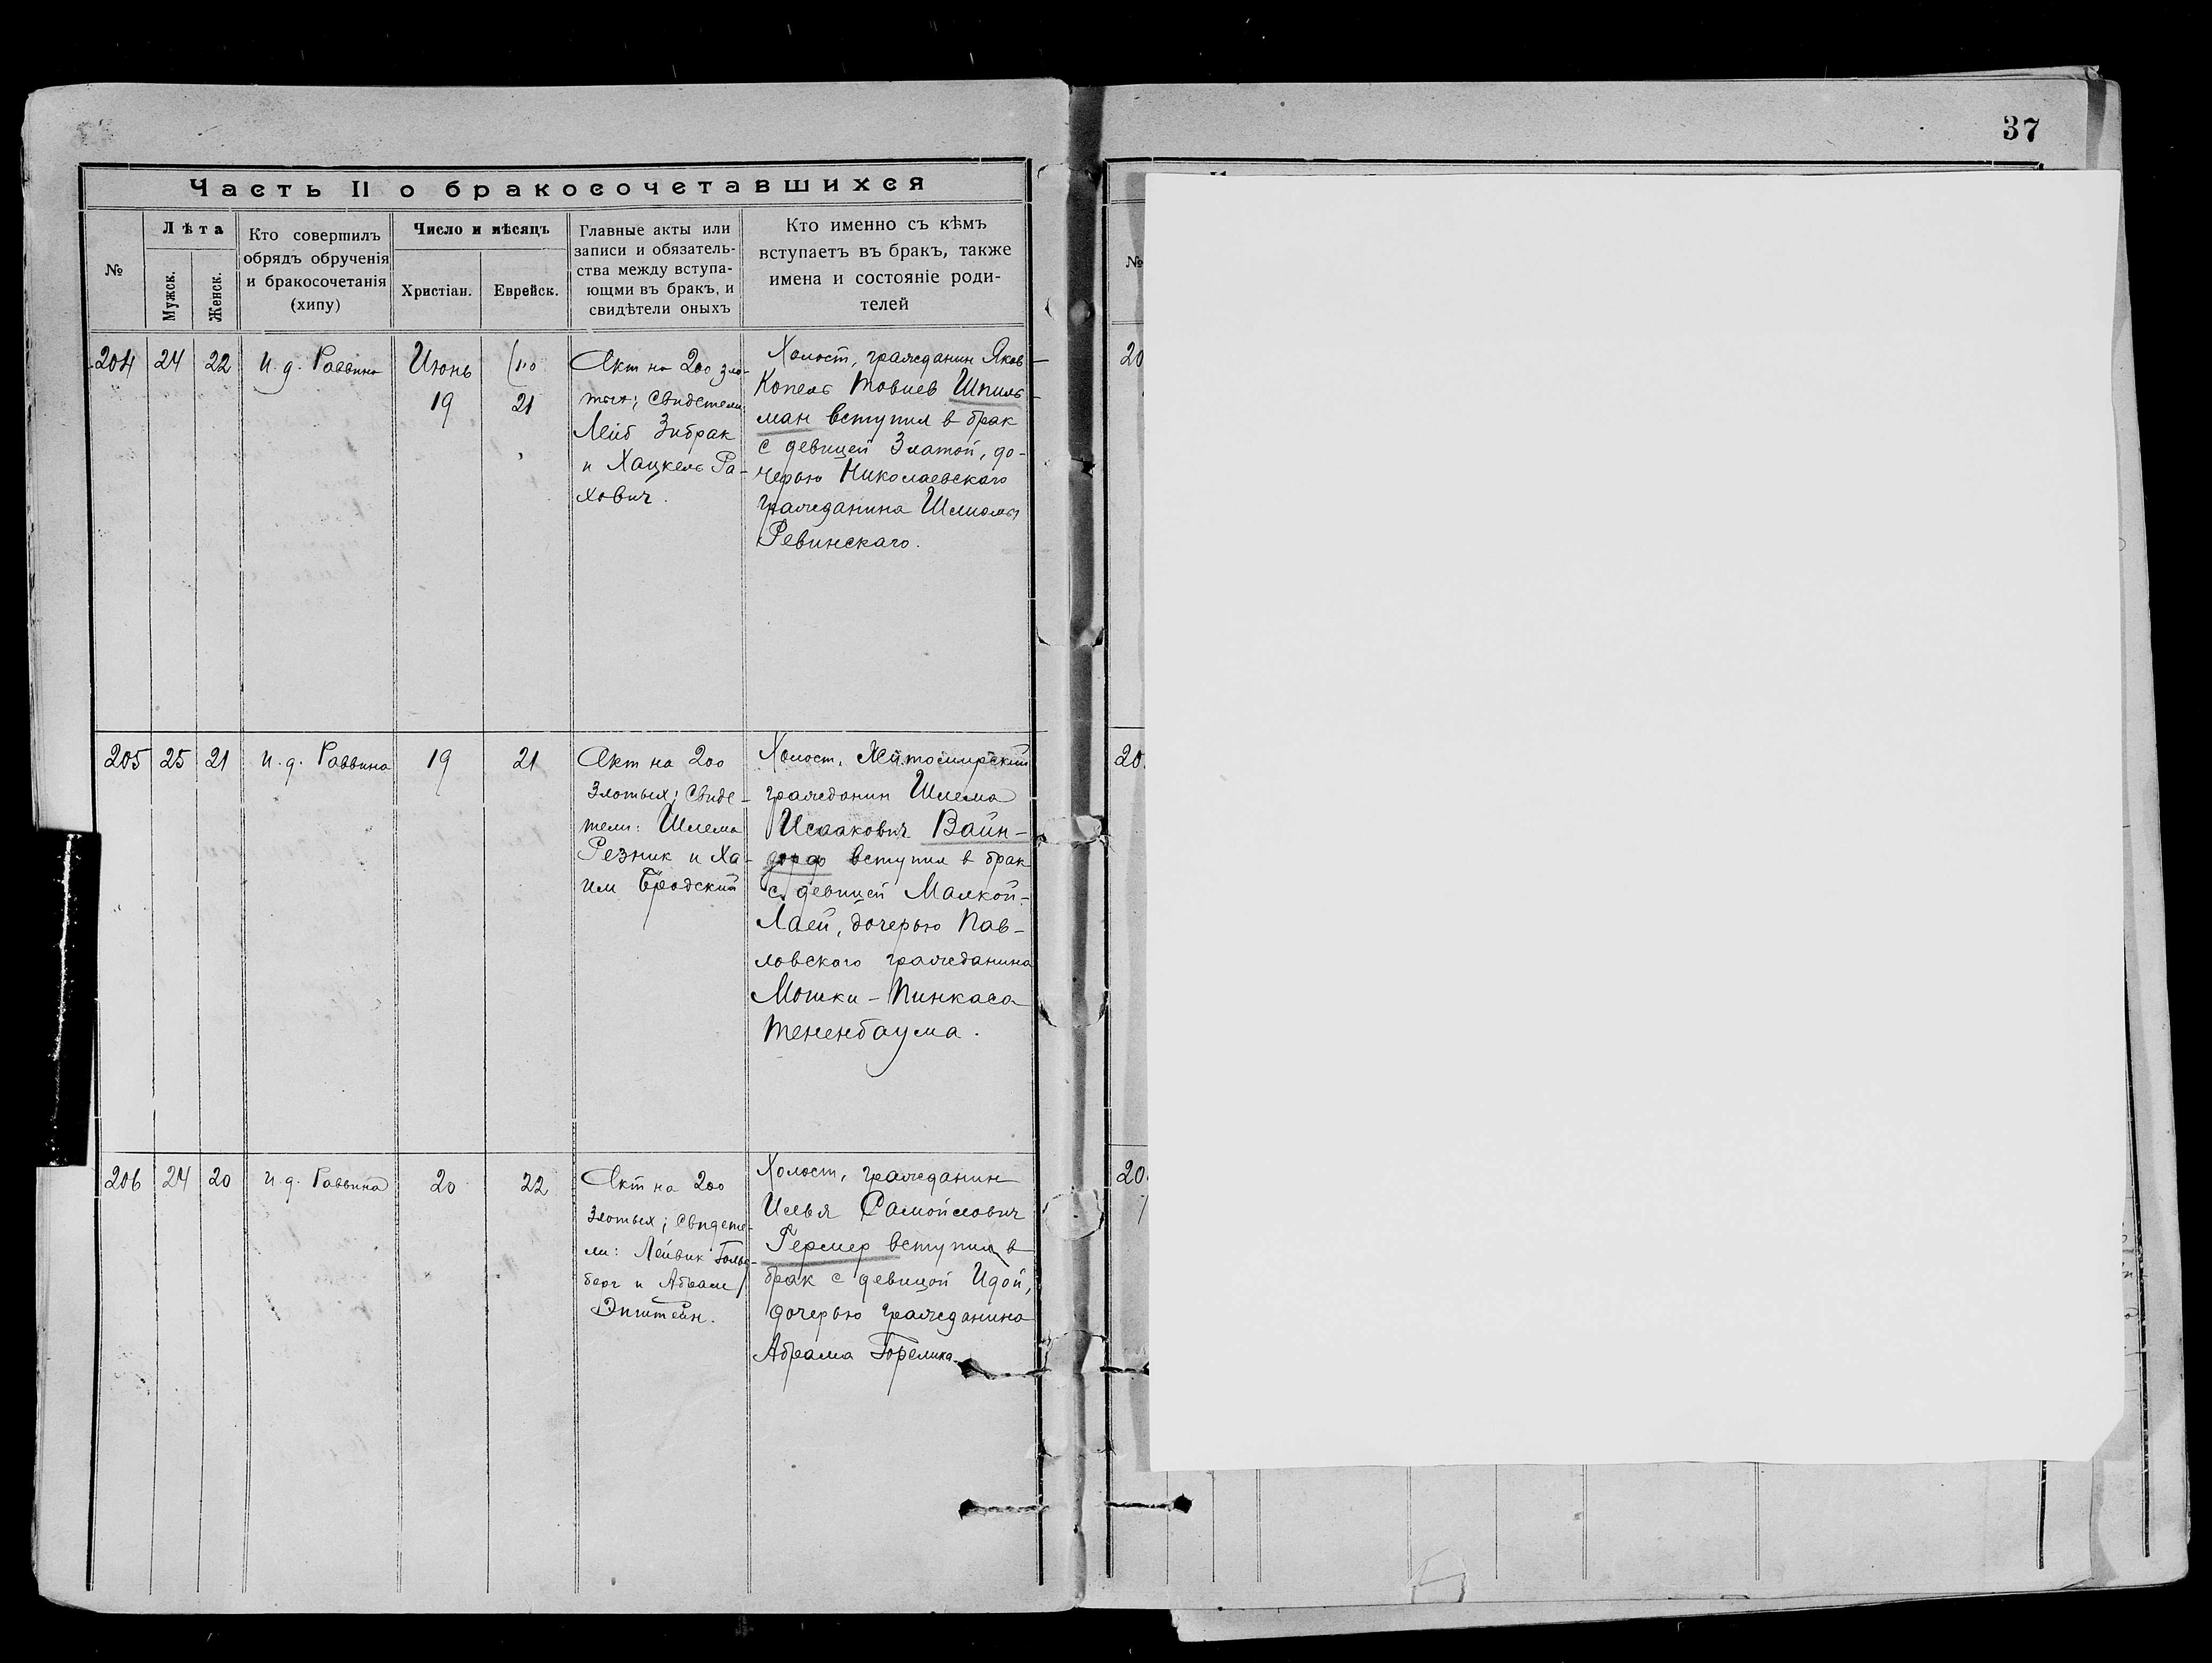 37
Часть II о бракосочетавшихся
№
Лѣта
Мужск.
Женск.
Кто совершилъ
обрядъ обрученія
и бракосочетанія
(хипу)
Число и мѣсяцъ
Христіан.
Еврейск.
Главные акты или
записи и обязатель-
ства между вступа-
ющми въ бракъ, и
свидѣтели оныхъ
Кто именно съ кѣмъ
вступаетъ въ бракъ, также
имена и состояніе роди-
телей
№
204
24
22
И. д. Раввина
Июнь
19
21
Акт на 200 зло-
тых; свидетели
Лейб Зибрак
и Хацкель Ра-
хович.
Холост, гражданин Яков-
Копель Товиев Шпиль-
ман вступил в брак
с девицей Златой, до-
черью Николаевскаго
гражданина Шлиомы
Ревинскаго.
20
205
25
21
и. д. Раввина
19
21
Акт на 200
злотых; свиде-
тели: Шлема
Резник и Ха-
им Бродский
Холост, Житомирский
гражданин Шлема
Исаакович Вайн-
дорф вступил в брак
с девицей Малкой-
Лаей, дочерью Пав-
ловского гражданина
Мошки-Пинкаса
Тененбаума.
20
206
24
20
и. д. Раввина
20
22
Акт на 200
злотых; свидете-
ли: Лейвик Голь-
берг и Абрам
Эпштейн.
Холост, гражданин
Илья Самойлович
Рермер вступил в
брак с девицой Идой,
дочерью гражданина
Абрама Горелика.
20